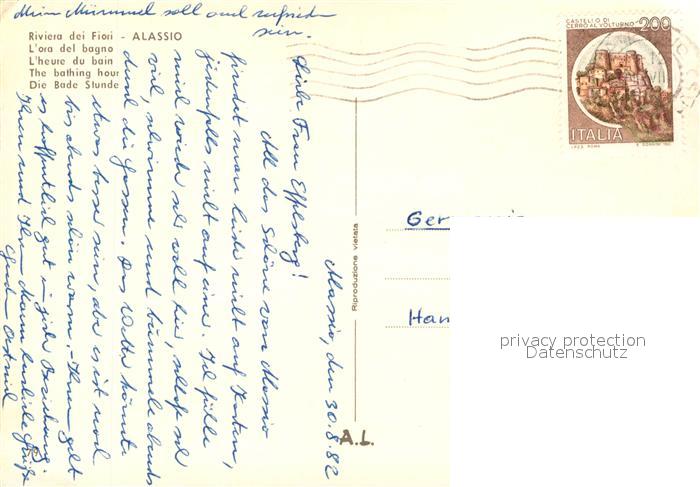 Mein Mümmel soll auch zufrieden
sein.
Riviera dei Fiori - ALASSIO
L'ora del bagno
L'heure du bain
The bathing hour
Die Bade Stunde
CASTELLO DI
CERRO AL VOLTURNO
200
ITALIA
I.P.Z.S. ROMA
Alassio, den 30.8.82
Liebe Frau Effelsberg!
All das Schöne von Alassio
findet man leider nicht auf Karten,
jedenfalls nicht auf einer. Ich fühle
mich wieder sehr wohl hier, schlafe sehr
viel, schwimme und bummele abends
durch die Gassen. Das Wetter könnte
etwas besser sein, da es ist noch
bis abends schön warm. - Ihnen geht
es hoffentlich gut in jeder Beziehung.
Ihnen und Ihrem Mann herzliche Grüße
Riproduzione vietata
A.L.
Ger
Han
privacy protection
Datenschutz